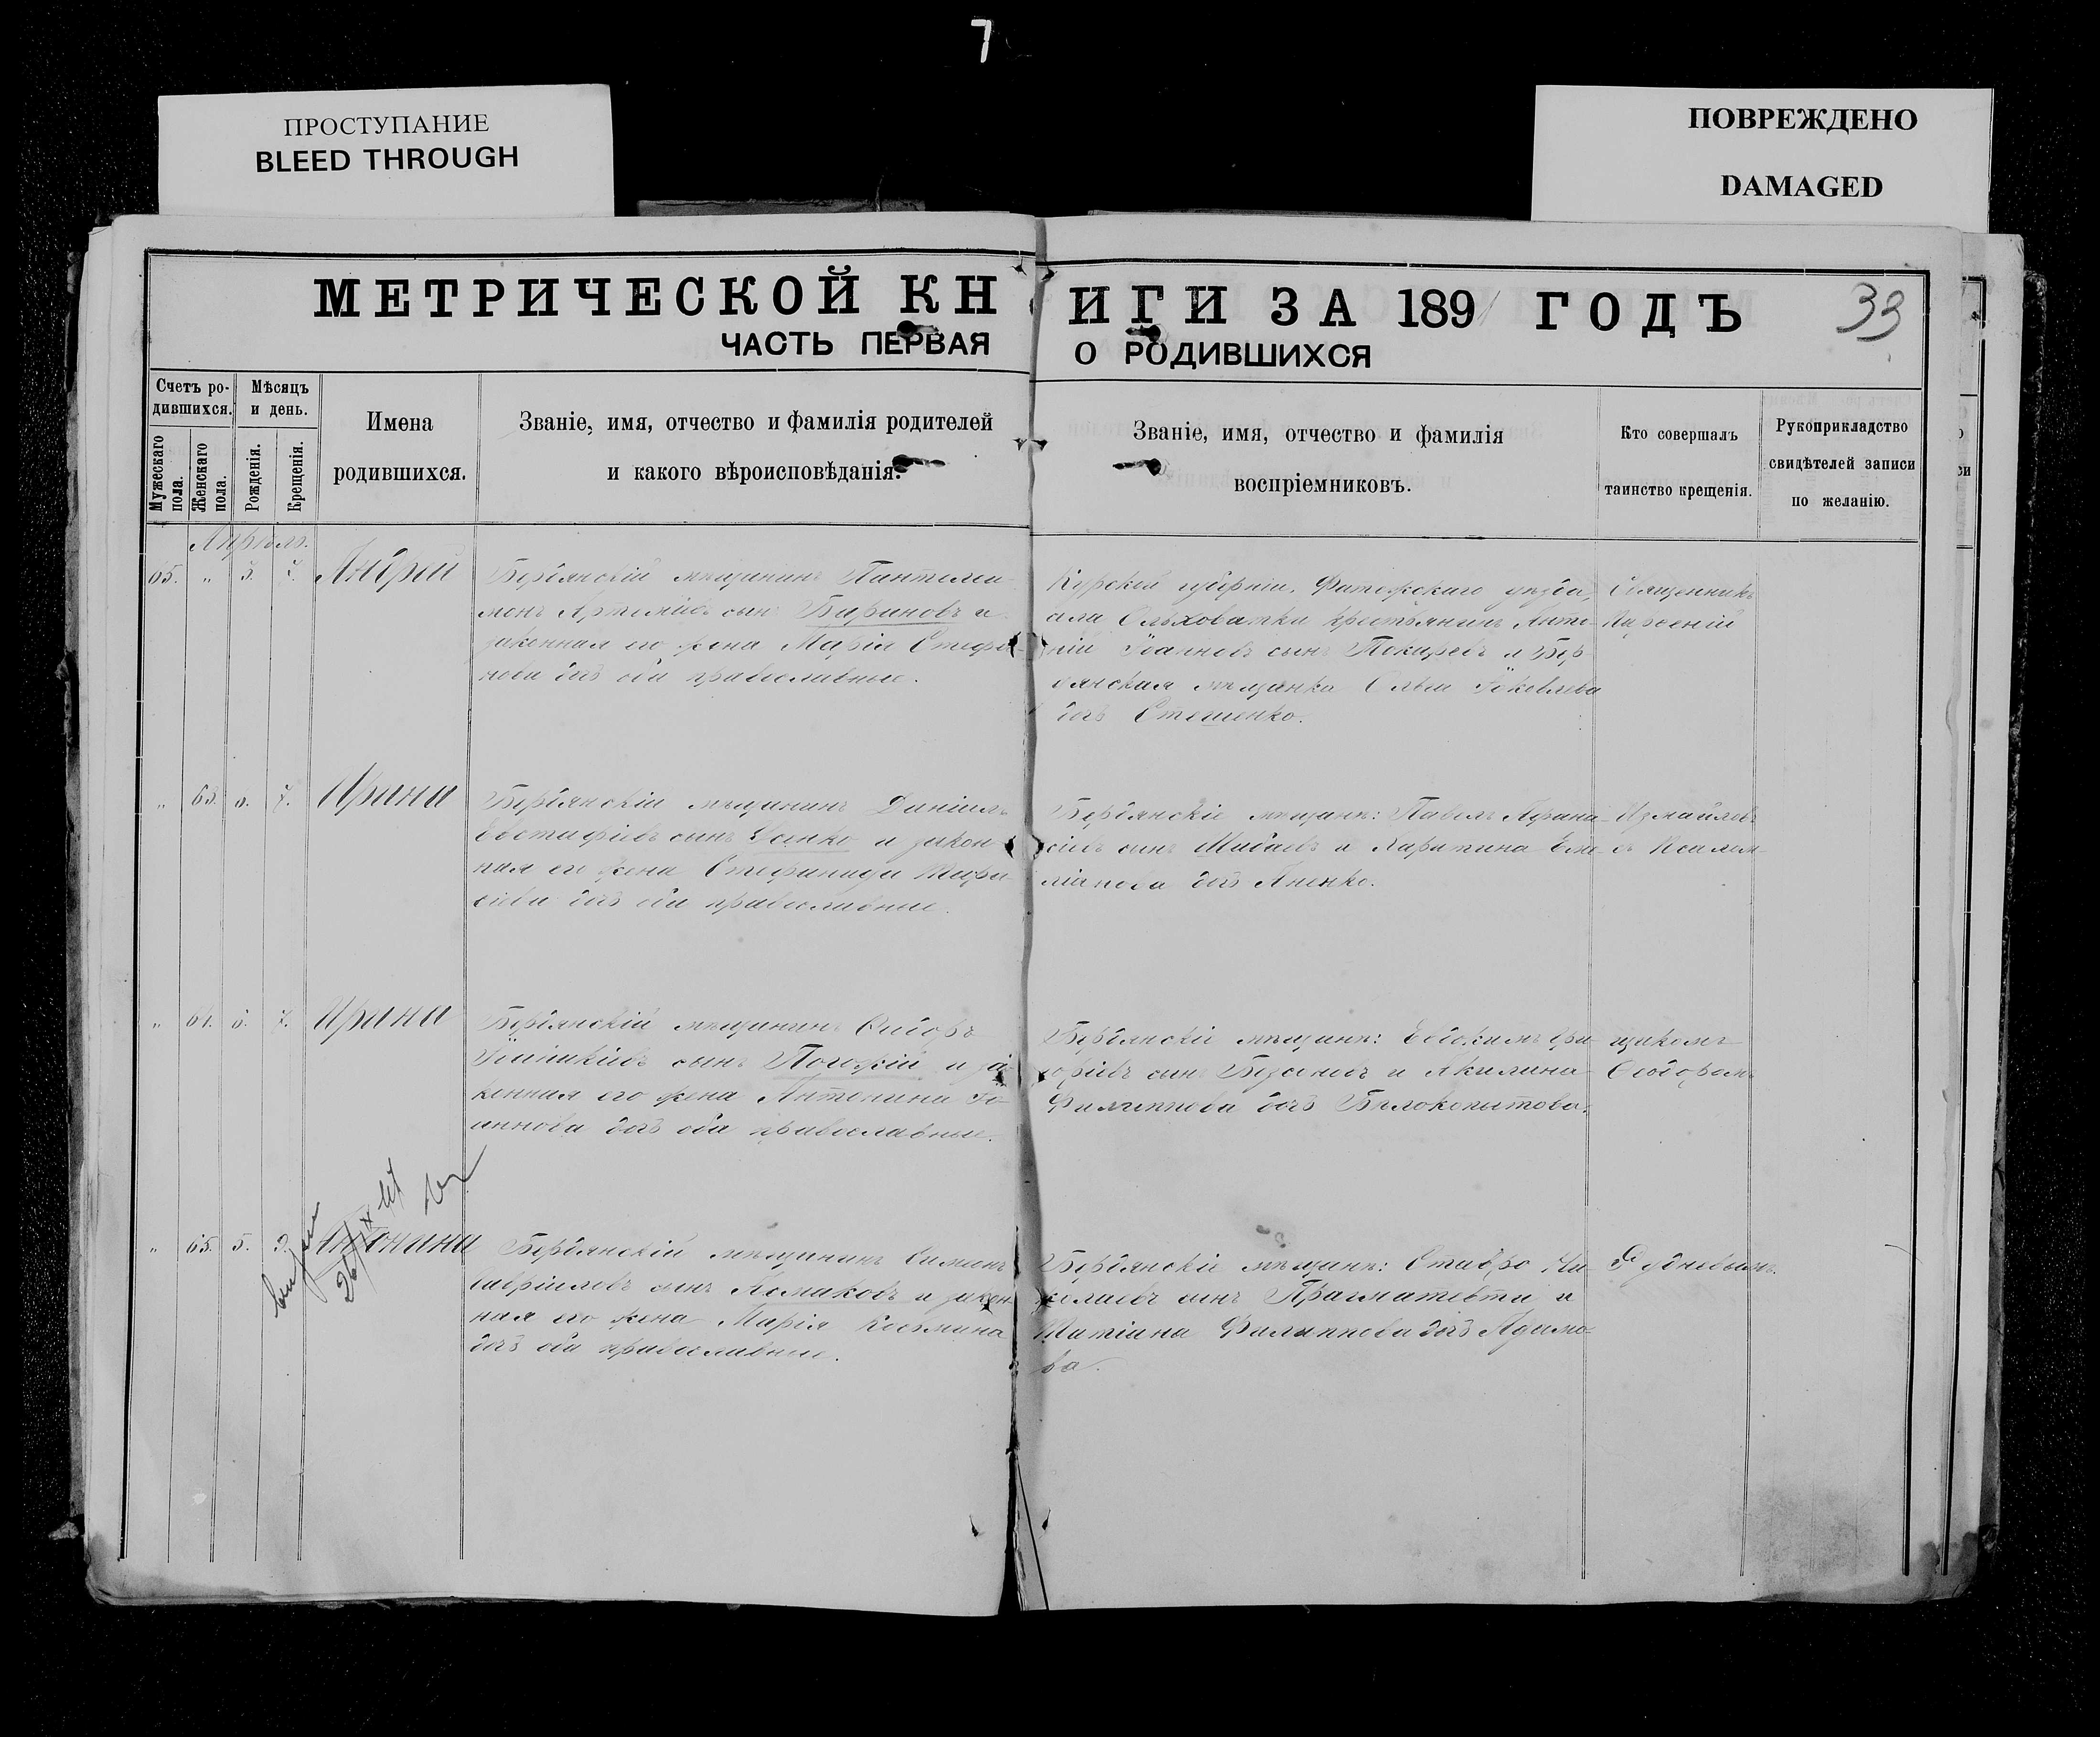 7
ПРОСТУПАНИЕ
BLEED THROUGH
ПОВРЕЖДЕНО
DAMAGED
МЕТРИЧЕСКОЙ КНИГИ ЗА 1891 ГОДЪ
33
ЧАСТЬ ПЕРВАЯ О РОДИВШИХСЯ
Счетъ ро-
дившихся.
Мужескаго пола.
Женскаго пола.
Мѣсяцъ
и день.
Рожденія.
Крещенія.
Имена
родившихся.
Званіе, имя, отчество и фамилія родителей
и какого вѣроисповѣданія.
Званіе, имя, отчество и фамилія
воспріемниковъ.
Кто совершалъ
таинство крещенія.
Рукоприкладство
свидѣтелей записи
по желанію.
Апрѣль.
65. " 3. 7. Андрей
Бердянскій мѣщанинъ Пантелеи-
монъ Артеміевъ сынъ Бариновъ и
законная его жена Марія Стефа-
нова дочь оба православные.
Курской губерніи, Фатежскаго уѣзда,
села Ольховатки крестьянинъ Анто-
ній Іоанновъ сынъ Токаревъ и Бер-
дянская мѣщанка Ольга Іаковлева
дочь Стешенко.
Священникъ
" 63. 7. Ирина
Бердянскій мѣщанинъ Даніилъ
Евстафіевъ сынъ Усенко и закон-
ная его жена Стефанида
дочь оба православные.
Бердянскіе мѣщане: Павелъ Афана-
сіевъ сынъ Шибаевъ и Харитина Еме-
ліанова дочь
Измайловъ
съ Псалом-
" 64. 7. Ирина
Бердянскій мѣщанинъ Ѳеодоръ
сынъ Погожій и за-
конная его жена Антонина Іо-
аннова дочь оба православные.
Бердянскіе мѣщане: Евдокимъ Гри-
горіевъ сынъ и Акилина
Филиппова дочь Бѣлокопытова.
щикомъ
Ѳеодоромъ
" 65. 5. Антонина
26/IX 41
Бердянскій мѣщанинъ Симеонъ
Гавріиловъ сынъ и закон-
ная его жена Марія Косьмина
дочь оба православные.
Бердянскіе мѣщане: Ставро Ни-
колаевъ сынъ и
Татіана Филиппова дочь Адамо-
ва.
Рудневымъ.